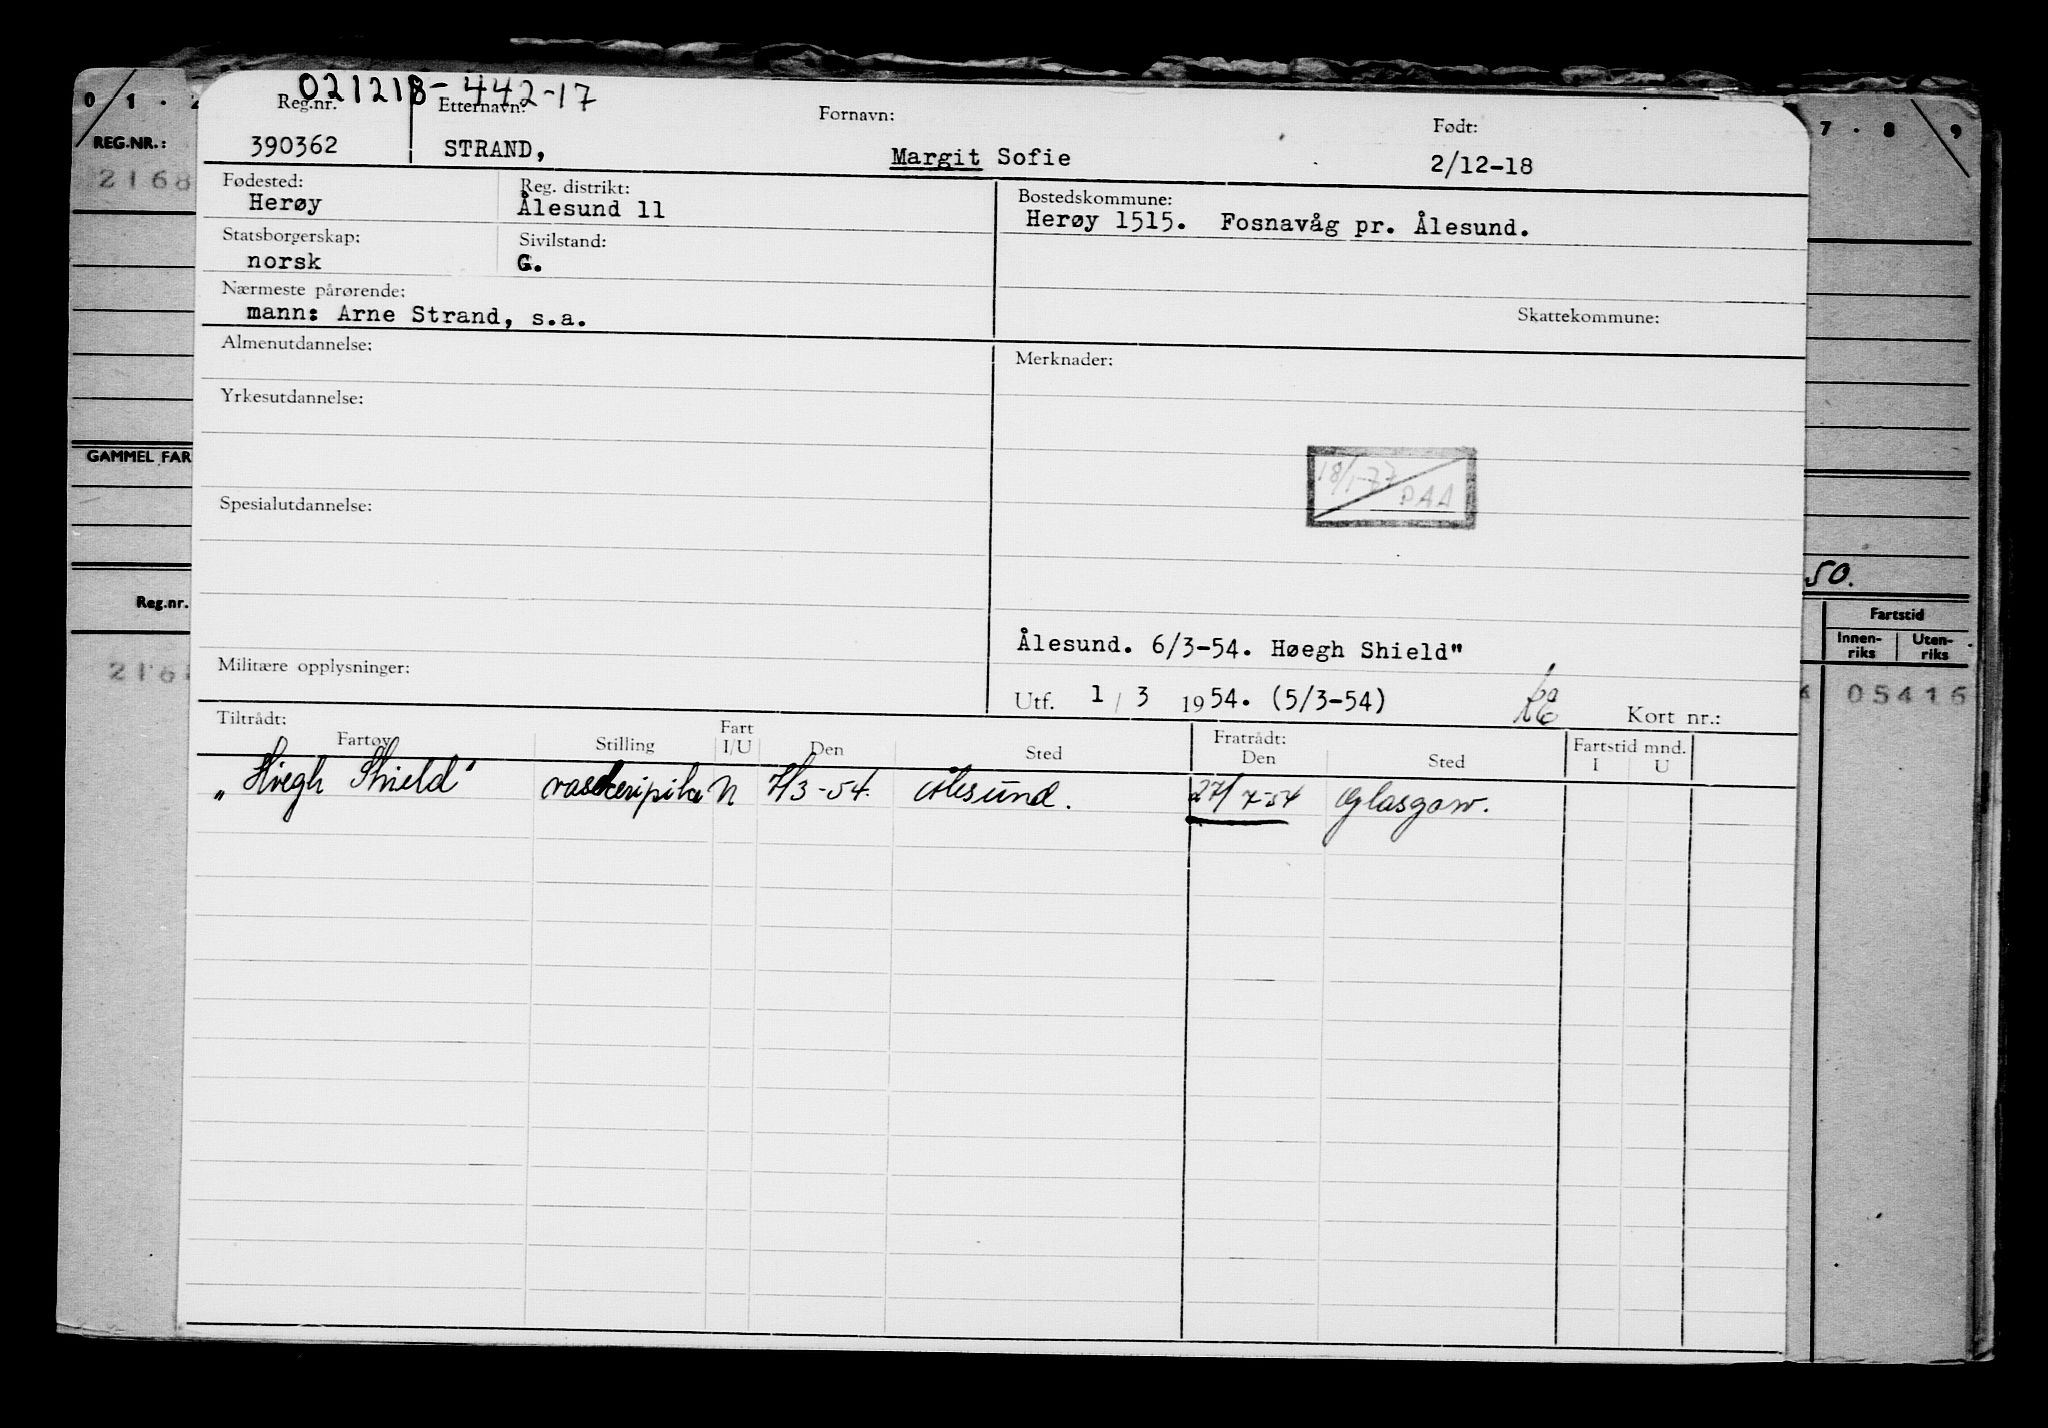 021218-442-17
Reg.nr. Etternavn: Fornavn: Født:
390362 STRAND, Margit Sofie 2/12-18
Fødested: Reg. distrikt: Bostedskommune:
Herøy Ålesund 11 Herøy 1515. Fosnavåg pr. Ålesund.
Statsborgerskap: Sivilstand:
norsk G.
Nærmeste pårørende:
mann: Arne Strand, s.a.
Skattekommune:
Almenutdannelse: Merknader:
Yrkesutdannelse:
18/1-77
PAA
Spesialutdannelse:
Ålesund. 6/3-54. Høegh Shield"
Militære opplysninger:
Utf. 1 / 3 1954. (5/3-54) Kort nr.:
Tiltrådt: Fart Fratrådt: Fartstid mnd.
Fartøy Stilling I/U Den Sted Den Sted I U
„Høegh Shield" vaskeripike N 7/3-54. Ålesund. 27/7-54 Glasgow.
0 1 . 2
REG.NR.:
2168
GAMMEL FAR
Reg.nr.
216
7 . 8 . 9
50.
Fartstid
Innen-riks Uten-riks
05416